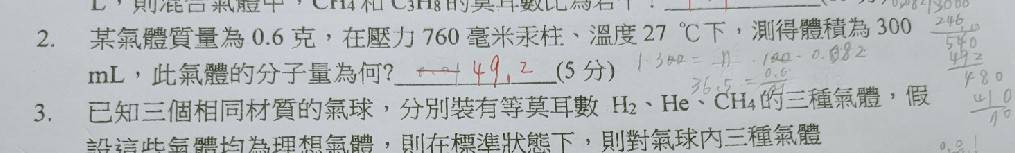 L，則混合氣體中，CH4 和 C3H8 的莫耳數比為若干？
2. 某氣體質量為 0.6 克，在壓力 760 毫米汞柱、溫度 27 ℃下，測得體積為 300
mL，此氣體的分子量為何? 49.2 (5 分)
3. 已知三個相同材質的氣球，分別裝有等莫耳數 H2、He、CH4 的三種氣體，假
設這些氣體均為理想氣體，則在標準狀態下，則對氣球內三種氣體